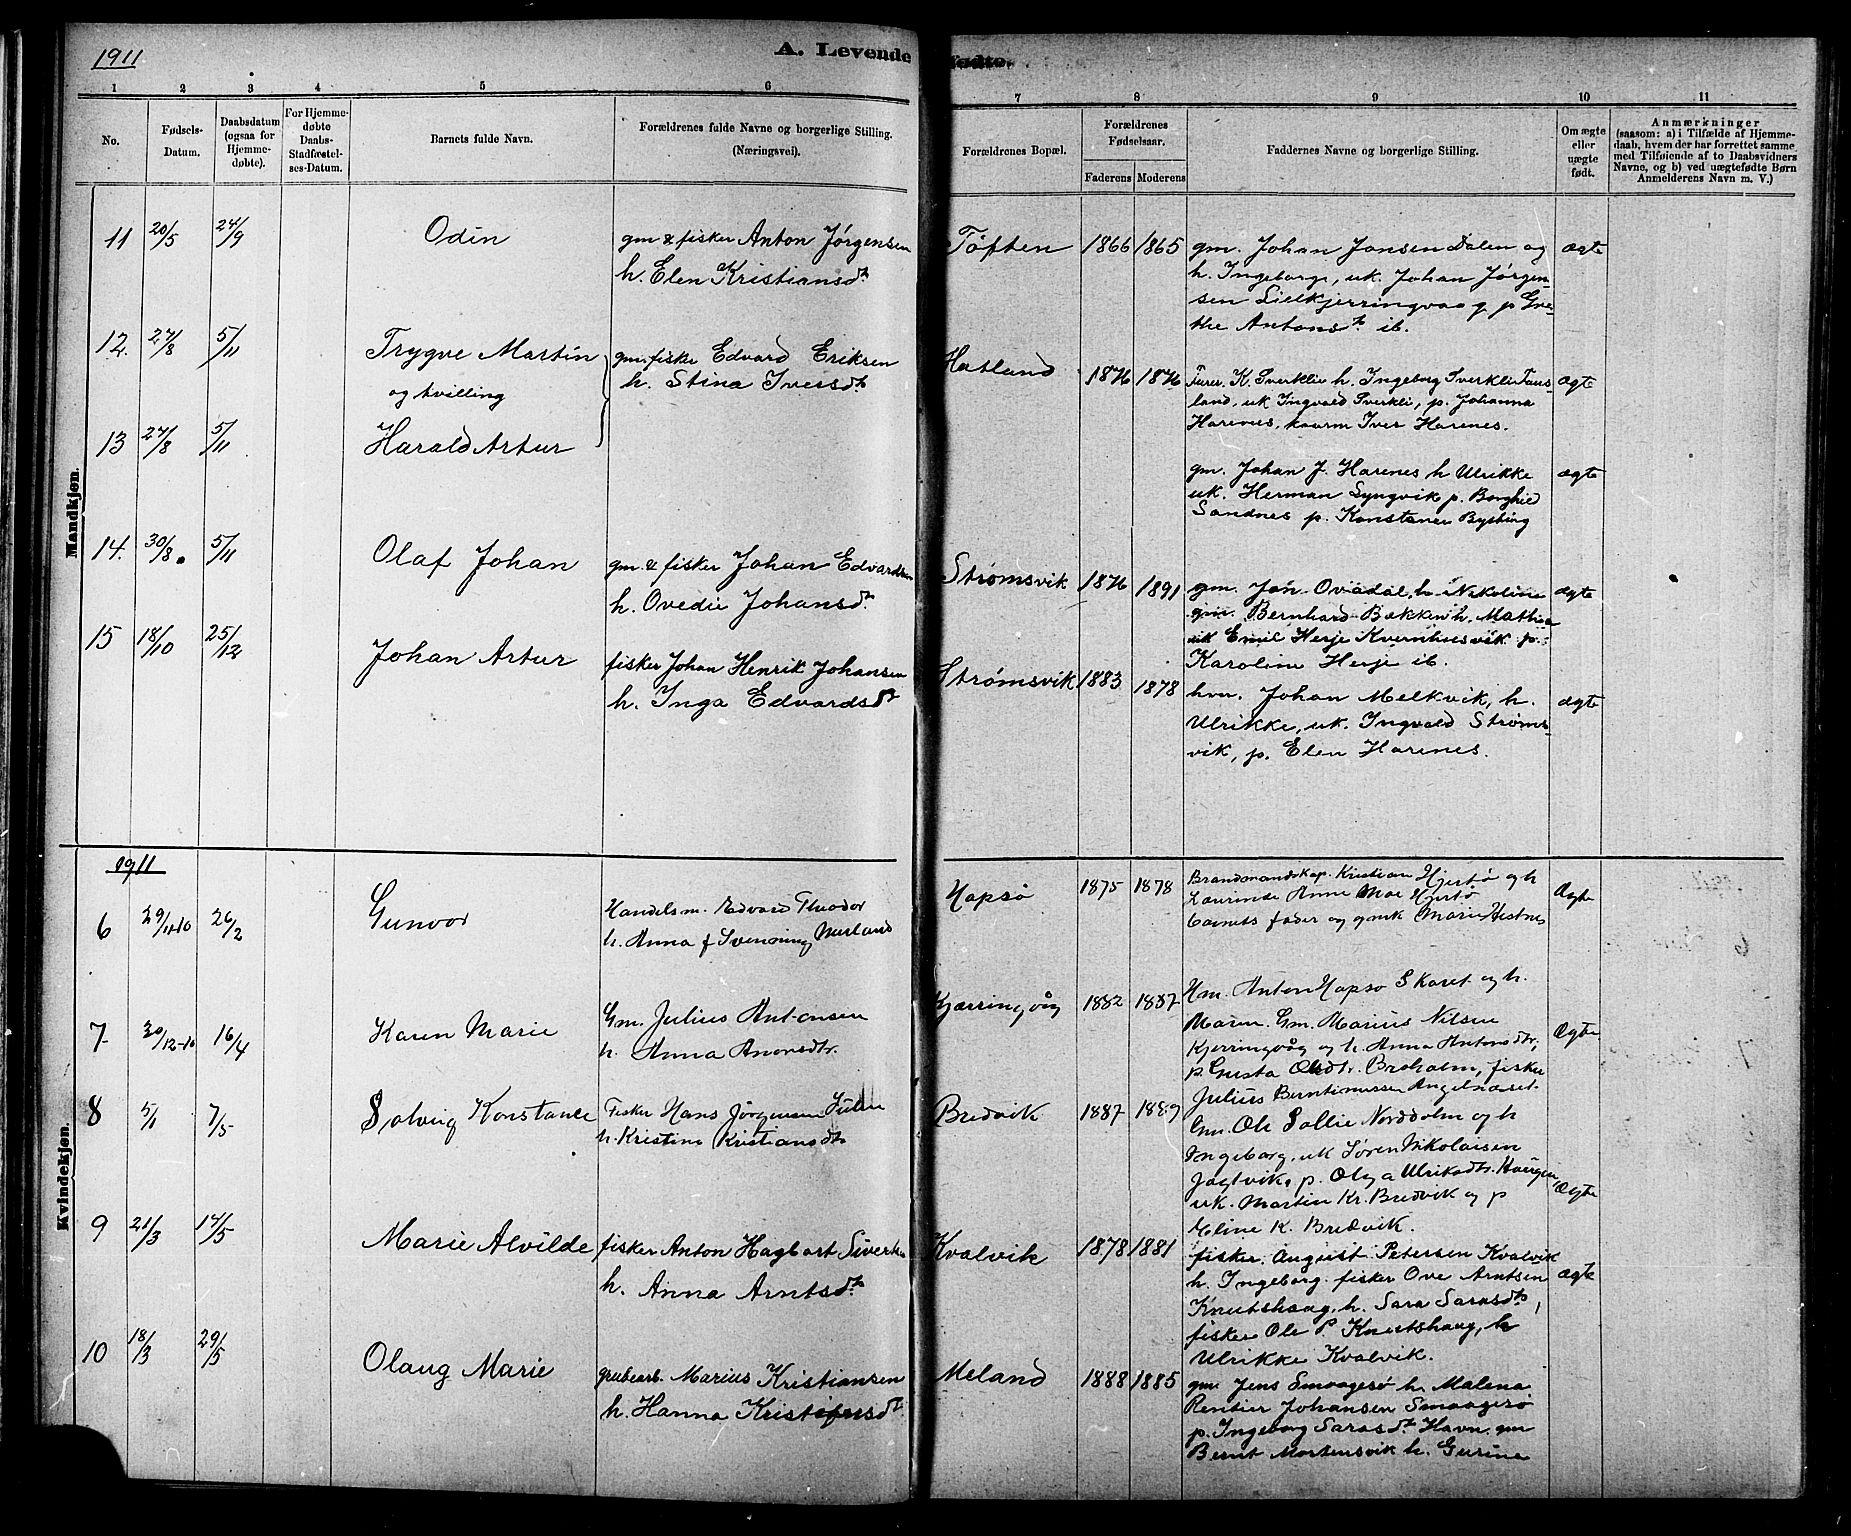 1911
A. Levende fødte.
1 2 3 4 5 6 7 8 9 10 11
No.
Fødsels-
Datum.
Daabsdatum
(ogsaa for
Hjemme-
døbte).
For Hjemme-
døbte
Daabs-
Stadfæstel-
ses-Datum.
Barnets fulde Navn.
Forældrenes fulde Navne og borgerlige Stilling.
(Næringsvei).
Forældrenes Bopæl.
Forældrenes
Fødselsaar.
Faderens Moderens
Faddernes Navne og borgerlige Stilling.
Om ægte
eller
uægte
født.
Anmærkninger
(saasom: a) i Tilfælde af Hjemme-
daab, hvem der har forrettet samme
med Tilføiende af to Daabsvidners
Navne, og b) ved uægtefødte Børn
Anmelderens Navn m. V.)
Mandkjøn.
11 20/5 24/9 Odin
gm & fisker Anton Jørgensen
h. Elen Kristiansdt
Toften 1866 1865
gm. Johan Jansen Dalen og
h. Ingeborg, uk. Johan Jørgen-
sen Lillkjerringvaag p Gre-
the Antonsdt ib.
ægte
12. 27/8 5/11 Trygve Martin
og tvilling
gm. fiske Edvard Eriksen
h. Stina Iversdt
Hatland 1876 1876
Furer. K. Sverkli h. Ingeborg Sverkli Faus-
land, uk Ingvald Sverkli, p. Johanna
Harenes, kaarm Iver Harenes.
ægte
13 27/8 5/11 Harald Artur
gm. Johan J. Harenes h Ulrikke
uk. Herman Lyngvik p. Borghild
Sandnes p. Konstance
ægte
14. 30/8 5/11 Olaf Johan
gm. & fisker Johan Edvardsen
h. Ovedie Johansdt.
Strømsvik 1876 1891
gm. Jon Ovedal, h. Nikoline
gm. Bernhard Bakken h. Mathea
uk Emil Herje Kvernhusvik p.
Karoline Herje ib.
ægte
15 18/10 25/12 Johan Artur
fisker Johan Henrik Johansen
h. Inga Edvardsdt
Strømsvik 1883 1878
hvn. Johan Melkvik, h.
Ulrikke, uk. Ingvald Strøms-
vik, p. Elen Harenes.
ægte
Kvindekjøn.
1911
6 29/11-10 26/2 Gunvor
Handelsm. Edvard Theodor
h. Anna f Svenning Merland
Hapsø 1875 1878
Brandmandskap. Kristian Hjertø og h
Laurinde Anne Moe Hjertø
barnets fader og gmk Marie Hestnes
Ægte
7 30/12-10 16/4 Karen Marie
Gm. Julius Antonsen
h. Anna Anorsdtr.
Kjærringvåg 1882 1887
Hm. Anton Hapsø Skaret og h.
Maren. Gm. Marius Nilsen
Kjerringvåg og h Anna Antonsdtr,
p. Gusta Olsdtr. Broholm, fisker
Julius Berntinussen Angelnæset.
Ægte
8 5/1 7/5 Solveig Konstance
Fisker Hans Jørgensen
h. Kristine Kristiansdtr
Bredvik 1887 1889
Gm. Ole Sollie Norddolm og h
Ingeborg, uk Søren Nikolaisen
Jagtvik, p. Olga Ulriksdtr. Haugen
uk. Martin Kr. Bredvik og p
Eline K. Bredvik.
Ægte
9 21/3 14/5 Marie Alvilde
fisker Anton Hagbart Sivertsen
h. Anna Arntsdt.
Kvalvik 1878 1881
fisker. August Petersen Kvalvik
h. Ingeborg. fisker Ove Arntsen
Knutshaug, h. Sara Sarasdt,
fisker Ole P. Knutshaug, h
Ulrikke Kvalvik.
ægte
10 18/3 29/5 Olaug Marie
grubearb. Marius Kristiansen
h. Hanna Kristofersdt.
Meland 1888 1885
gm Jens Smaagesø h. Malena
Rentier Johansen Smaagesø
p. Ingeborg Sarasdt Havn. gm
Bernt Mortensvik h. Gurine